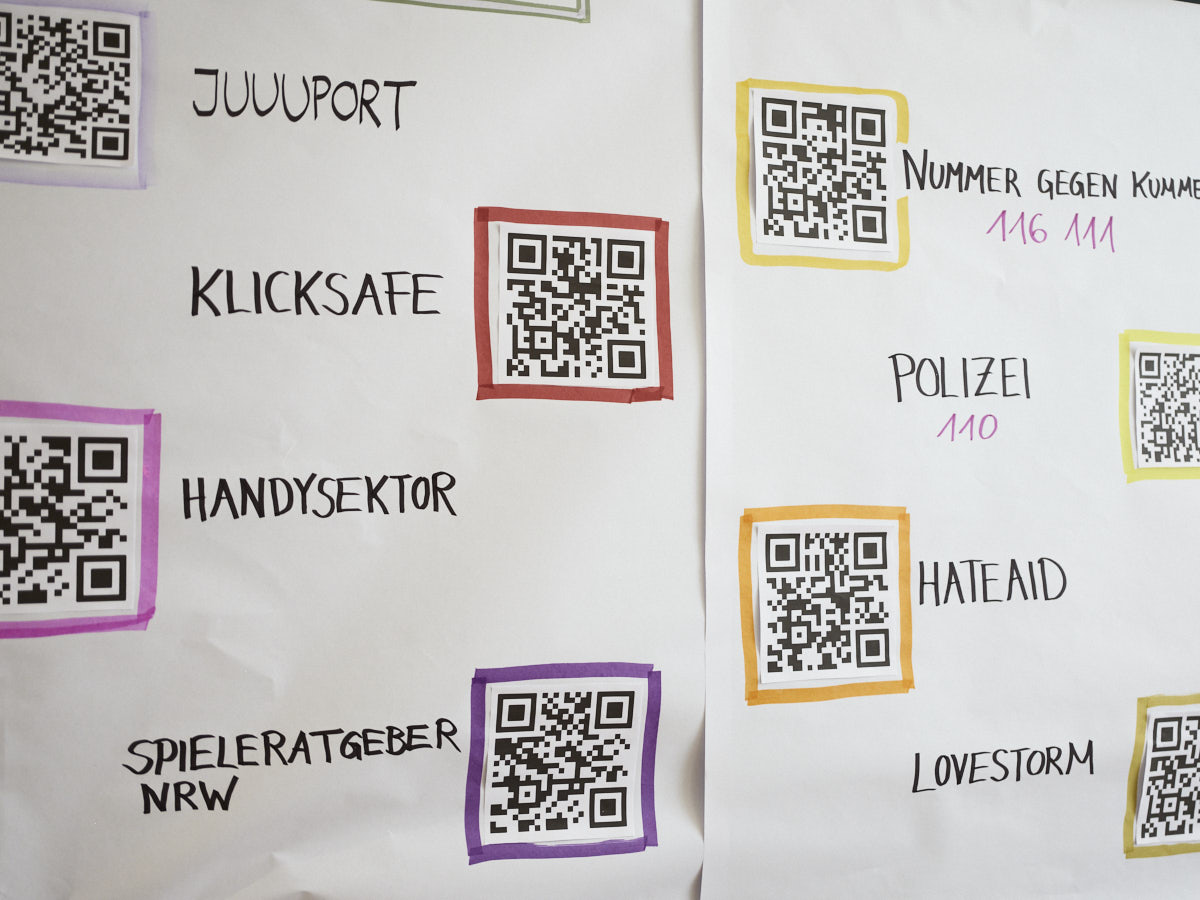 JUUUPORT
KLICKSAFE
HANDYSEKTOR
SPIELERATGEBER
NRW
NUMMER GEGEN KUMME
116 111
POLIZEI
110
HATEAID
LOVESTORM